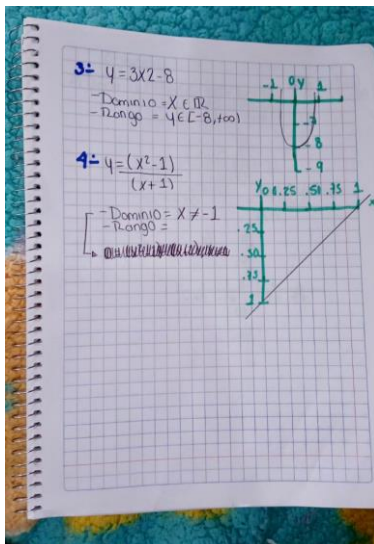 3- y = 3x2-8
-Dominio = x ∈ ℝ
-Rango = y ∈ [-8,+∞)
-1 0 y 1
-7
-8
-9
4- y = (x²-1)
(x+1)
-Dominio = x ≠ -1
-Rango =
y 0 0.25 .50 .75 1 x
.25
.50
.75
1